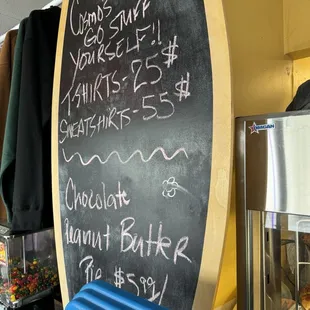 Cosmo's
GO STUFF
YOURSELF!!
T-SHIRTS - 25$
SWEATSHIRTS - 55$
Chocolate
Peanut Butter
Pie $5.99/